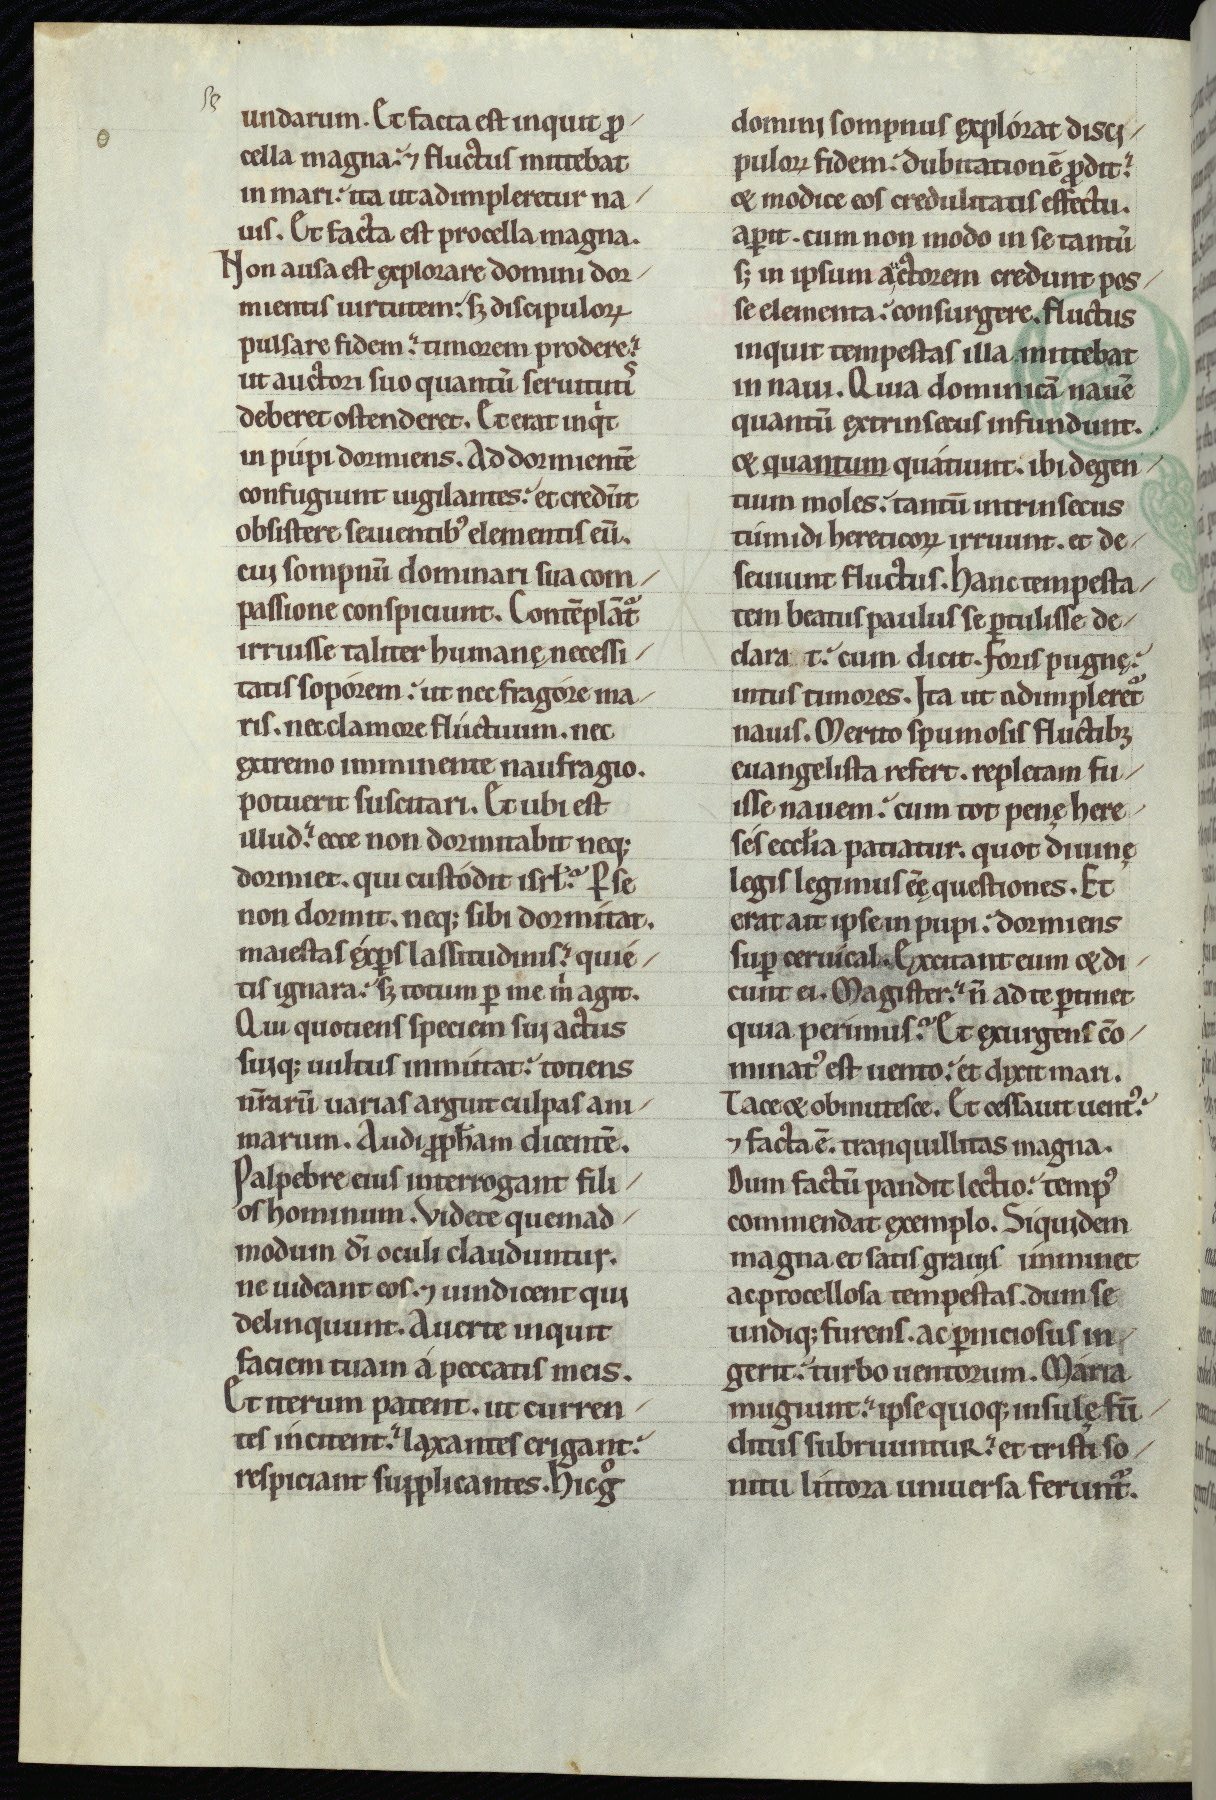 undarum. Et facta est inquit ꝓ/
cella magna. ⁊ fluctus mittebat
in mari. ita ut adimpleretur na/
uis. Et facta est procella magna.
Non ausa est explorare domini dor/
mientis uirtutem. sꝫ discipuloꝝ
pulsare fidem. timorem prodere.
ut auctori suo quantū seruitutis
deberet ostenderet. Et erat inqͥt
in puppi dormiens. Ad dormientē
confugiunt uigilantes. et credūt
obsistere seuientibꝰ elementis eū.
cui sompnū dominari sua com/
passione conspiciunt. Contēplāt᷑
irruisse taliter humanę necessi/
tatis soporem. ut nec fragore ma/
ris. nec clamore fluctuum. nec
extremo imminente naufragio.
potuerit suscitari. Et ubi est
illud. ecce non dormitabit neqꝫ
dormiet. qui custodit isrł. ꝑ se
non dormit. neqꝫ sibi dormitat.
maiestas expͬs lassitudinis. quie/
tis ignara. sꝫ totum ꝑ me mͥ agit.
Qui quotiens speciem sui actus
suiqꝫ uultus inmutat. totiens
nr̄arū uarias arguit culpas ani/
marum. Audi ꝓph̄am dicentē.
Palpebre eius interrogant fili/
os hominum. Videte quemad/
modum dī oculi clauduntur.
ne uideant eos. ⁊ uindicent qui
delinquunt. Auerte inquit
faciem tuam a peccatis meis.
Et iterum patent. ut curren/
tes incitent. laxantes erigant.
respiciant supplicantes. Hic gͦ
domini sompnus explorat disci/
puloꝝ fidem. dubitationē ꝓdit.
& modice eos credulitatis effectu.
aꝑit. cum non modo in se tantū
sꝫ in ipsum auctorem credunt pos/
se elementa. consurgere. fluctus
inquit tempestas illa mittebat
in naui. Quia dominicā nauē
quantū extrinsecus infundunt.
& quantum quatiunt. ibi degen/
tium moles. tantū intrinsecus
tumidi hereticoꝝ irruunt. et de/
seuiunt fluctus. Hanc tempesta/
tem beatus paulus se ꝑtulisse de/
clara t. cum dicit. Foris pugnę.
intus timores. Ita ut adimpleret᷑
nauis. Merito spumosis fluctibꝫ
euangelista refert. repletam fu/
isse nauem. cum tot penę here/
ses ecclīa patiatur. quot diuinę
legis legimus eē questiones. Et
erat ait ipse in puppi. dormiens
suꝑ ceruical. Excitant eum & di/
cunt ei. Magister. n̄ ad te ꝑtinet
quia perimus. Et exurgens cō/
minatꝰ est uento. et dixit mari.
Tace & obmutesce. Et cessauit uentꝰ.
⁊ facta ē. tranquillitas magna.
Dum factū pandit lectio. tempꝰ
commendat exemplo. Siquidem
magna et satis grauis imminet
ac procellosa tempestas. dum se
undiqꝫ furens. ac ꝑniciosus in/
gerit. turbo uentorum. Maria
mugiunt. ipse quoqꝫ insulę fū/
ditus subruuntuR. et tristi so/
nitu littora uniuersa ferunt᷑.